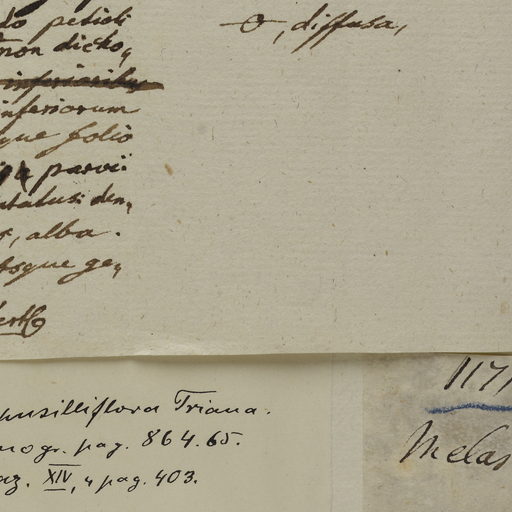 do petioli
non dicho,
inferioribus
inferiorum
que folio
parvii
den,
, alba.
osque ge,
, diffusa,
pusilliflora Triana.
nogr. pag. 864. 65.
az. XIV, 4 pag. 403.
1171
Melas